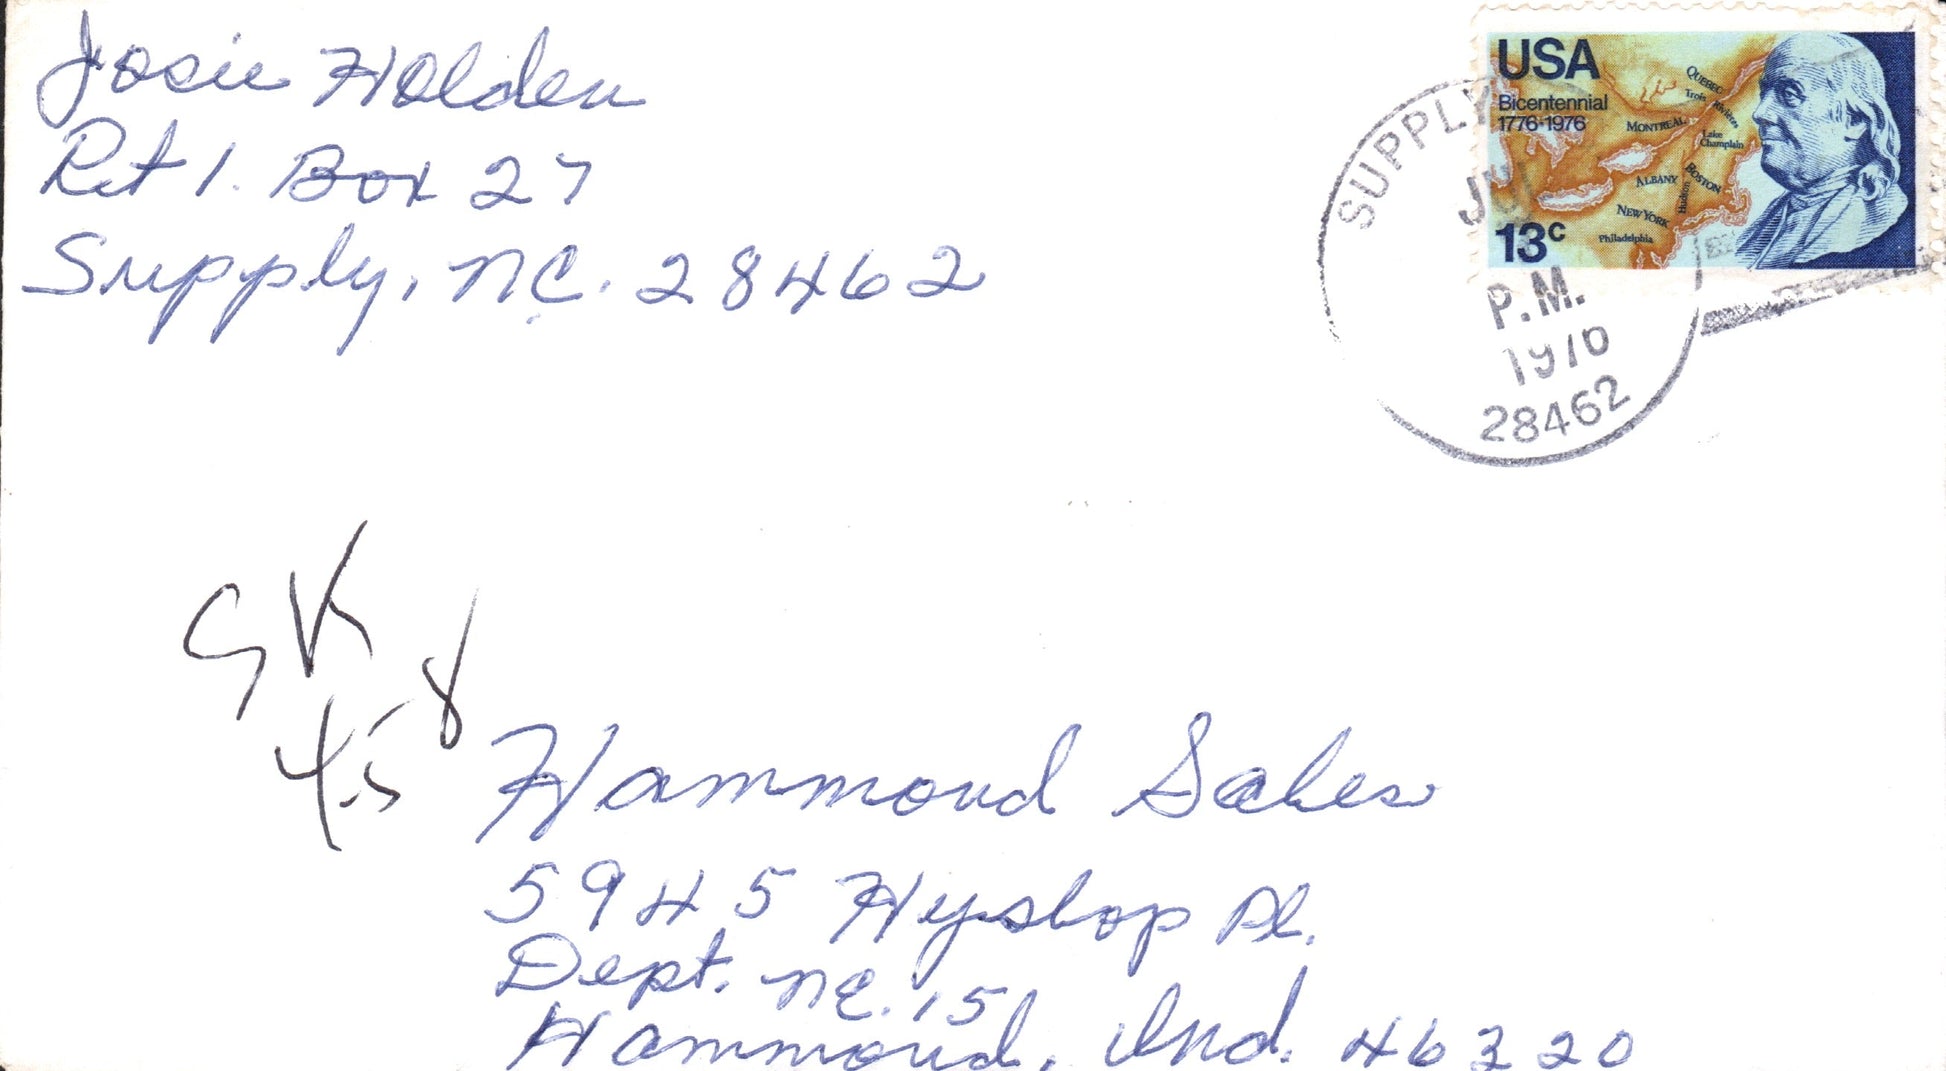 Josie Holden
Rt 1. Box 27
Supply, NC. 28462
USA
Bicentennial
1776-1976
QUEBEC
Trois Rivieres
MONTREAL
Lake
Champlain
ALBANY
BOSTON
Hudson
NEW YORK
Philadelphia
13c
SUPPLY
P.M.
1976
28462
GK
4.58
Hammond Sales
5945 Hyslop Pl.
Dept. NC. 15
Hammond, Ind. 46320